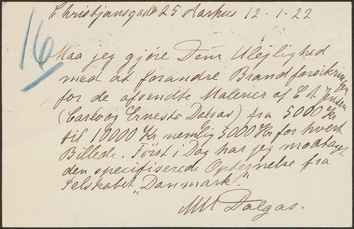 Christjansgade 25 Aarhus 12-1-22
16
Maa jeg gjøre Dem Ulejlighed
med at forandre Brandforsikringen
for de afsendte Malerier af C. A. Jensen
(Carl og Ernesto Dalgas) fra 5000 Kr
til 10000 Kr nemlig 5000 Kr for hvert
Billede. Først i Dag har jeg modtaget
den specifiserede Opgivelse fra
Selskabet "Danmark".
Dalgas.